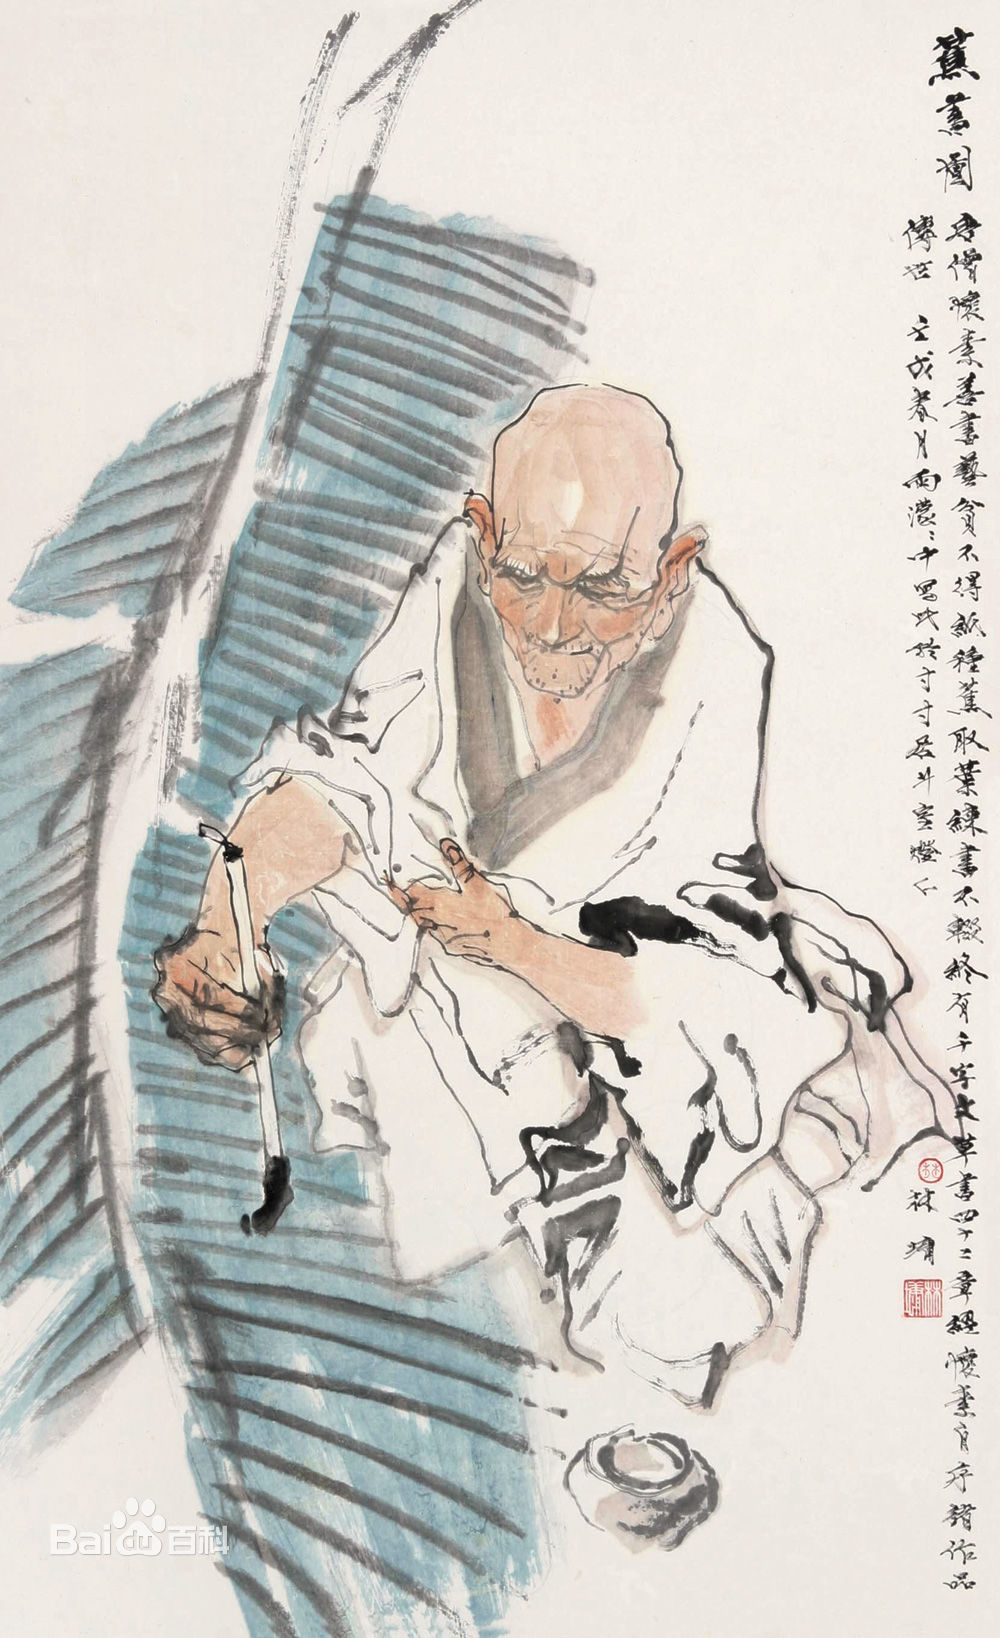 蕉書圖
唐僧懷素善書藝貧不得紙種蕉取葉練書不輟終有千字文草書四十二章經懷素自序諸作品
傳世 壬戌春月雨濛濛中寫此於寸寸居斗室燈下
林墉
林墉
Bai百科